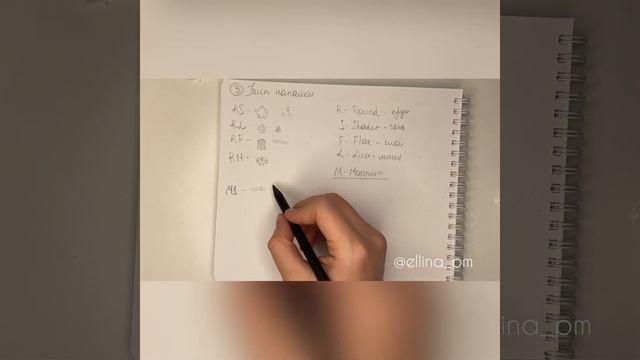 ③ Тип напайки
RS -
RL -
RF -
RM -
M1 -
R - Round - круг
S - Shader - тень
F - Flat - слой
L - Liner - линия
M - Magnum
@ellina_pm
ina_pm